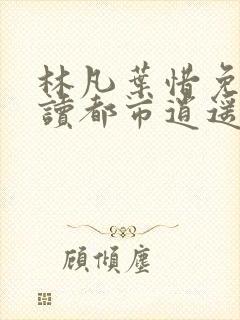 林凡葉惜免
讀都市逍遙
顧傾塵